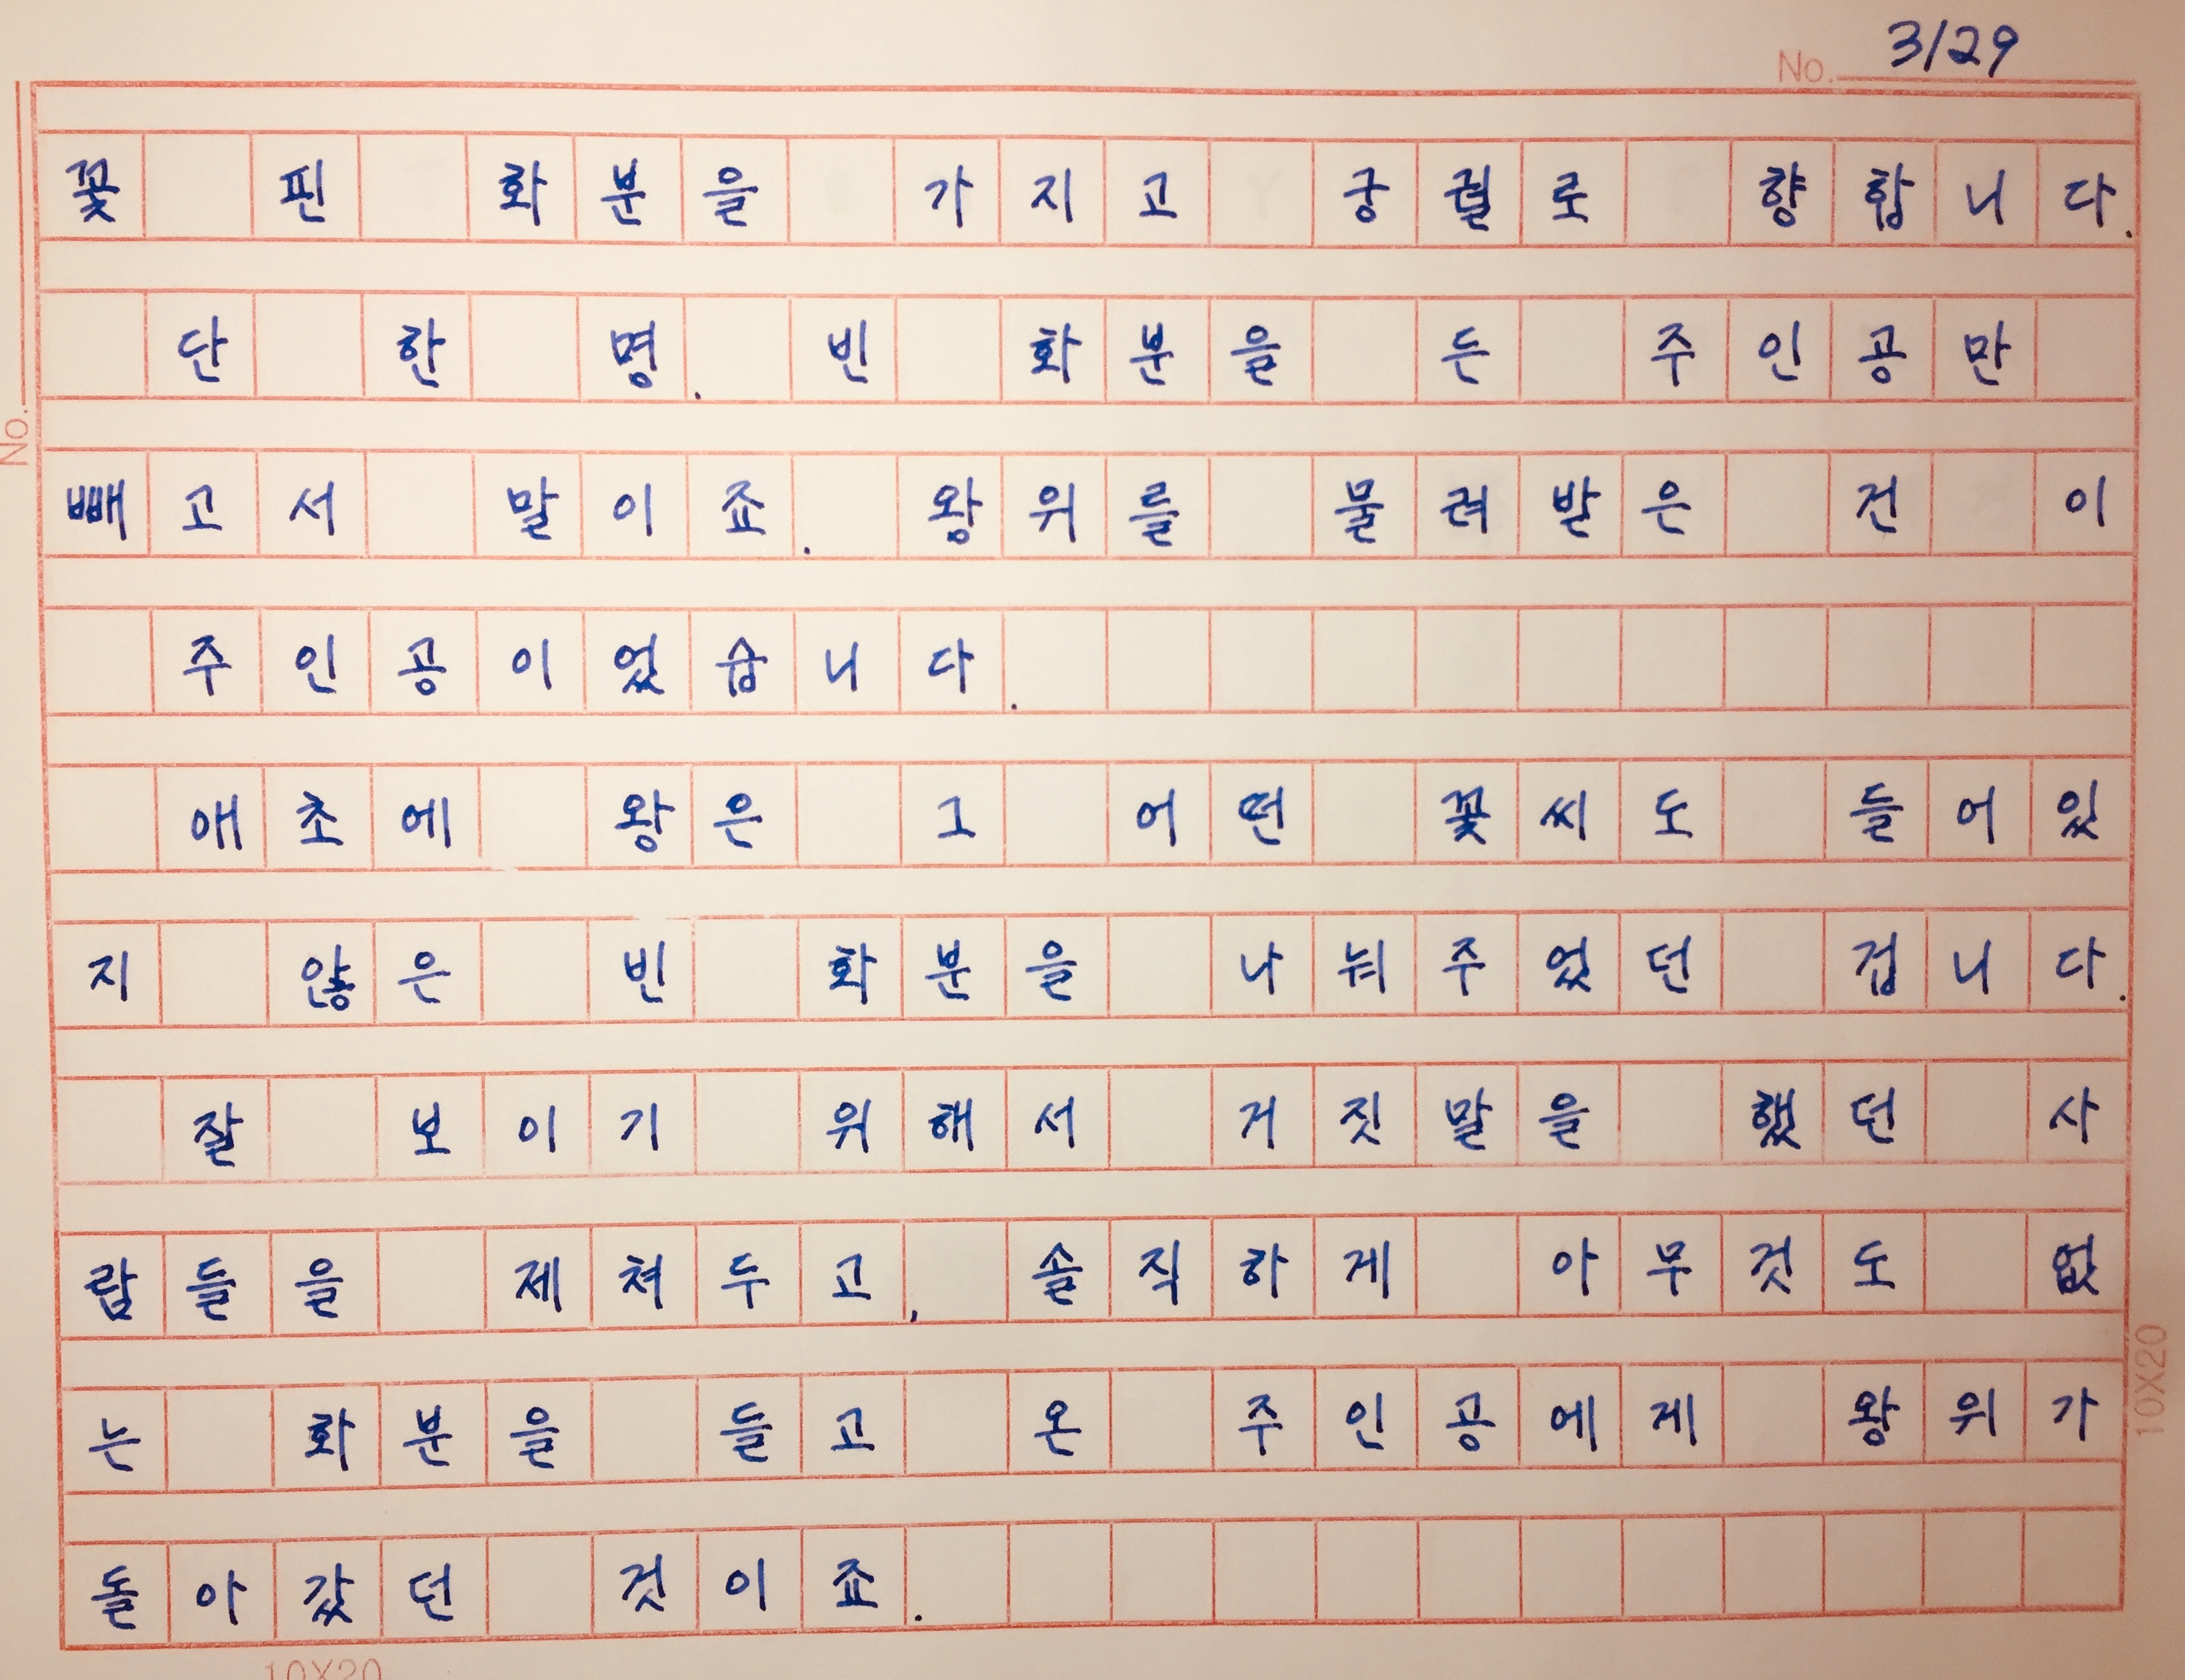 No. 3/29
꽃 핀 화분을 가지고 궁궐로 향합니다.
단 한 명. 빈 화분을 든 주인공만
빼고서 말이죠. 왕위를 물려받은 건 이
주인공이었습니다.
애초에 왕은 그 어떤 꽃씨도 들어있
지 않은 빈 화분을 나눠주었던 겁니다.
잘 보이기 위해서 거짓말을 했던 사
람들을 제쳐두고, 솔직하게 아무것도 없
는 화분을 들고 온 주인공에게 왕위가
돌아갔던 것이죠.
No.
10X20
10X20